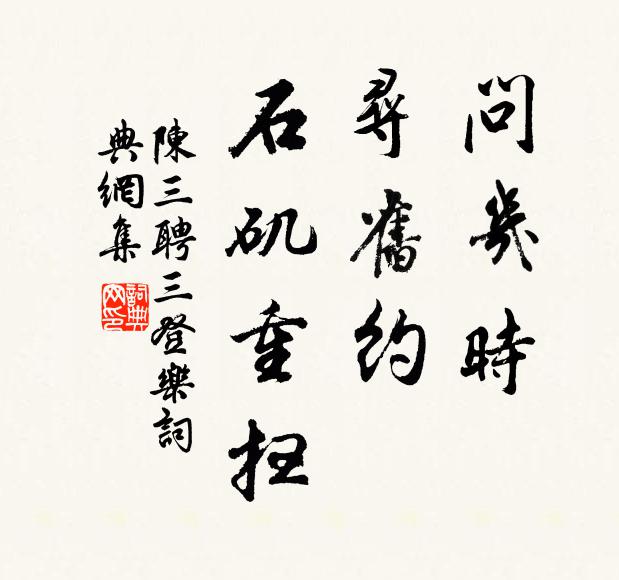 問幾時
尋舊約
石矶重扫
陳三聘三登樂詞
典網集
詞典网印